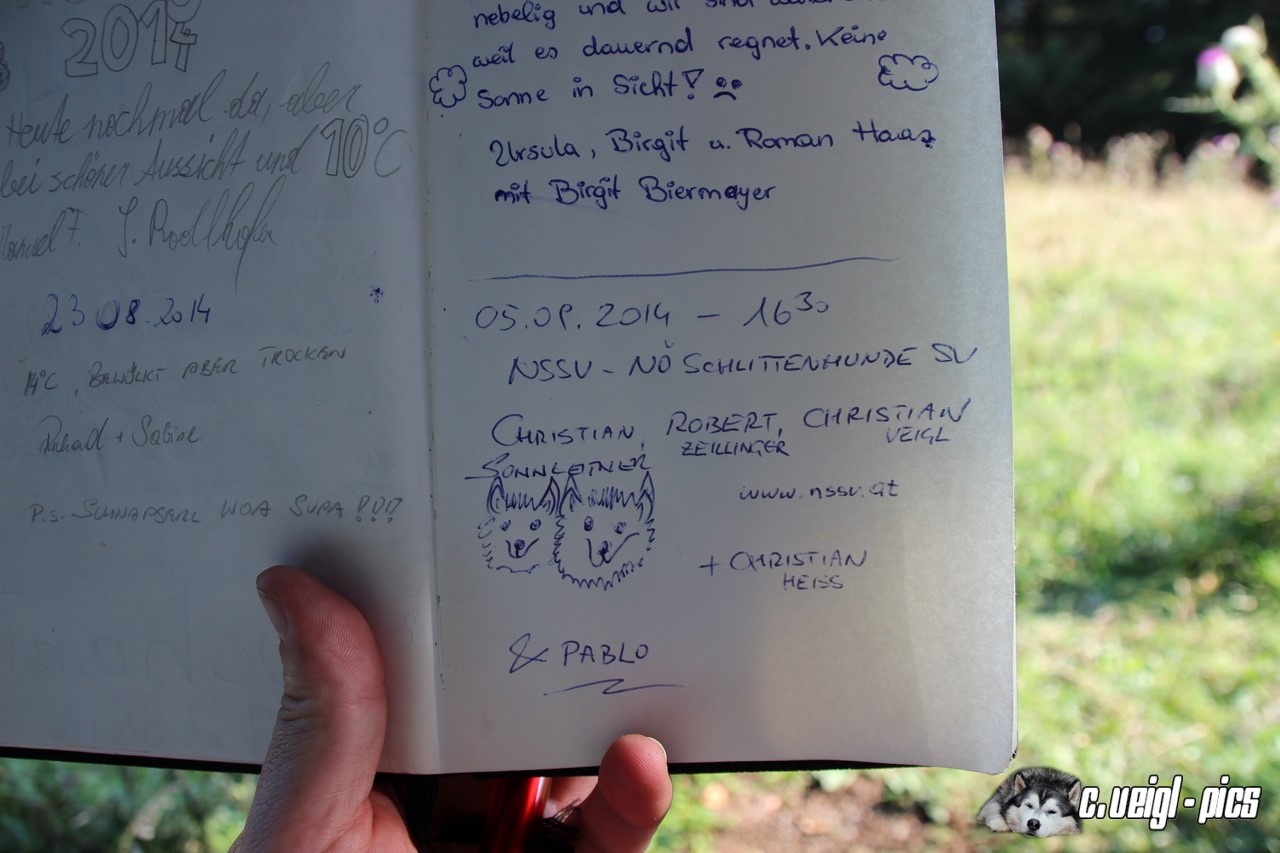 2014
Heute nochmal da, aber
bei schöner Aussicht und 10°C
23 08. 2014
14°C, BEWÖLKT ABER TROCKEN
+ Sabine
P.S. SCHNAPSERL WOA SUPA !!!!
nebelig und wir sind
weil es dauernd regnet. Keine
Sonne in Sicht!
Ursula, Birgit u. Roman Haas
mit Birgit Biermayer
05.09.2014 – 16³⁰
NSSV - NÖ SCHLITTENHUNDE SV
CHRISTIAN, ROBERT, CHRISTIAN
SONNLEITNER ZEILLINGER VEIGL
www.nssv.at
+ CHRISTIAN
HEISS
& PABLO
c.veigl - pics